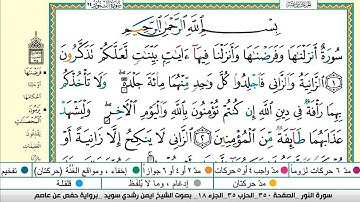 بِسْمِ ٱللَّهِ ٱلرَّحْمَٰنِ ٱلرَّحِيمِ
سُورَةٌ أَنزَلْنَٰهَا وَفَرَضْنَٰهَا وَأَنزَلْنَا فِيهَآ ءَايَٰتٍۭ بَيِّنَٰتٍ لَّعَلَّكُمْ تَذَكَّرُونَ
١ ٱلزَّانِيَةُ وَٱلزَّانِى فَٱجْلِدُوا۟ كُلَّ وَٰحِدٍ مِّنْهُمَا مِا۟ئَةَ جَلْدَةٍ وَلَا تَأْخُذْكُم
بِهِمَا رَأْفَةٌ فِى دِينِ ٱللَّهِ إِن كُنتُمْ تُؤْمِنُونَ بِٱللَّهِ وَٱلْيَوْمِ ٱلْءَاخِرِ وَلْيَشْهَدْ
عَذَابَهُمَا طَآئِفَةٌ مِّنَ ٱلْمُؤْمِنِينَ ٢ ٱلزَّانِى لَا يَنكِحُ إِلَّا زَانِيَةً أَوْ
مدّ ٦ حركات لزوماً
مدّ واجب ٤ أو ٥ حركات
مدّ ٢ أو ٤ أو ٦ جوازاً
إخفاء، ومواقع الغُنَّة (حركتان)
تفخيم
مدّ حركتان
إدغام، وما لا يُلفَظ
قلقلة
سورة النور _الصفحة ٣٥٠_ الجزء ١٨_ بصوت الشيخ ايمن رشدي سويد _برواية حفص عن عاصم